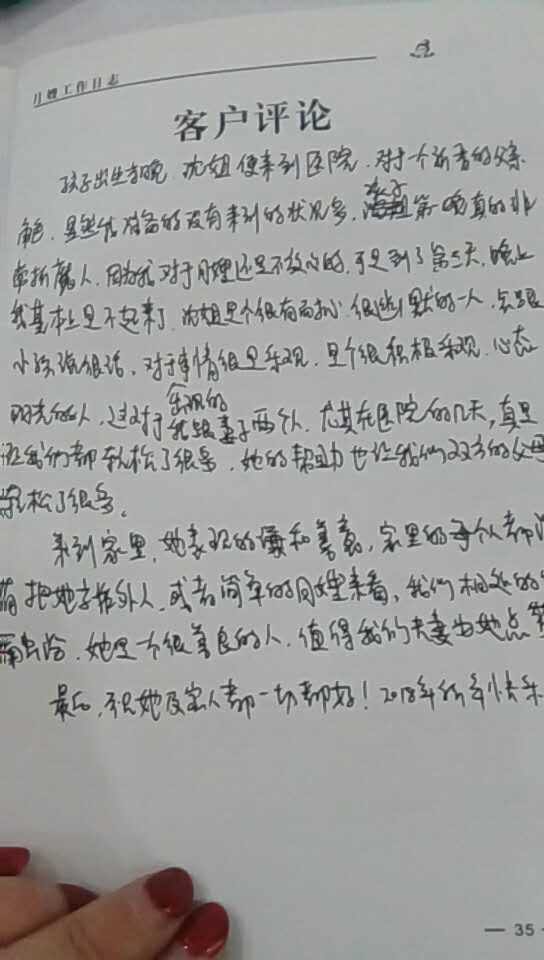 月嫂工作日志
客户评论
孩子出生当晚,沈姐便来到医院,对于一个新晋的父亲
角色,显然准备的没有来到的状况多,孩子第一晚真的非
常折腾人,因为我对于月嫂还是不放心的,于是到了第三天,晚上
我基本上是不起来了,沈姐是个很有耐心,很幽默的一人,会跟
小孩说很多话,对于事情很是乐观,是个很积极乐观,心态
阳光的人,这对于乐观的我跟妻子两个人,尤其在医院的几天,真是
让我们都轻松了很多,她的帮助也让我们双方的父母
轻松了很多。
来到家里,她表现的谦和善意,家里的每个人都没
有把她当作外人,或者简单的月嫂来看,我们相处的
融洽,她是一个很善良的人,值得我们夫妻为她点赞
最后,祝她及家人都一切都好!2018年新年快乐
— 35